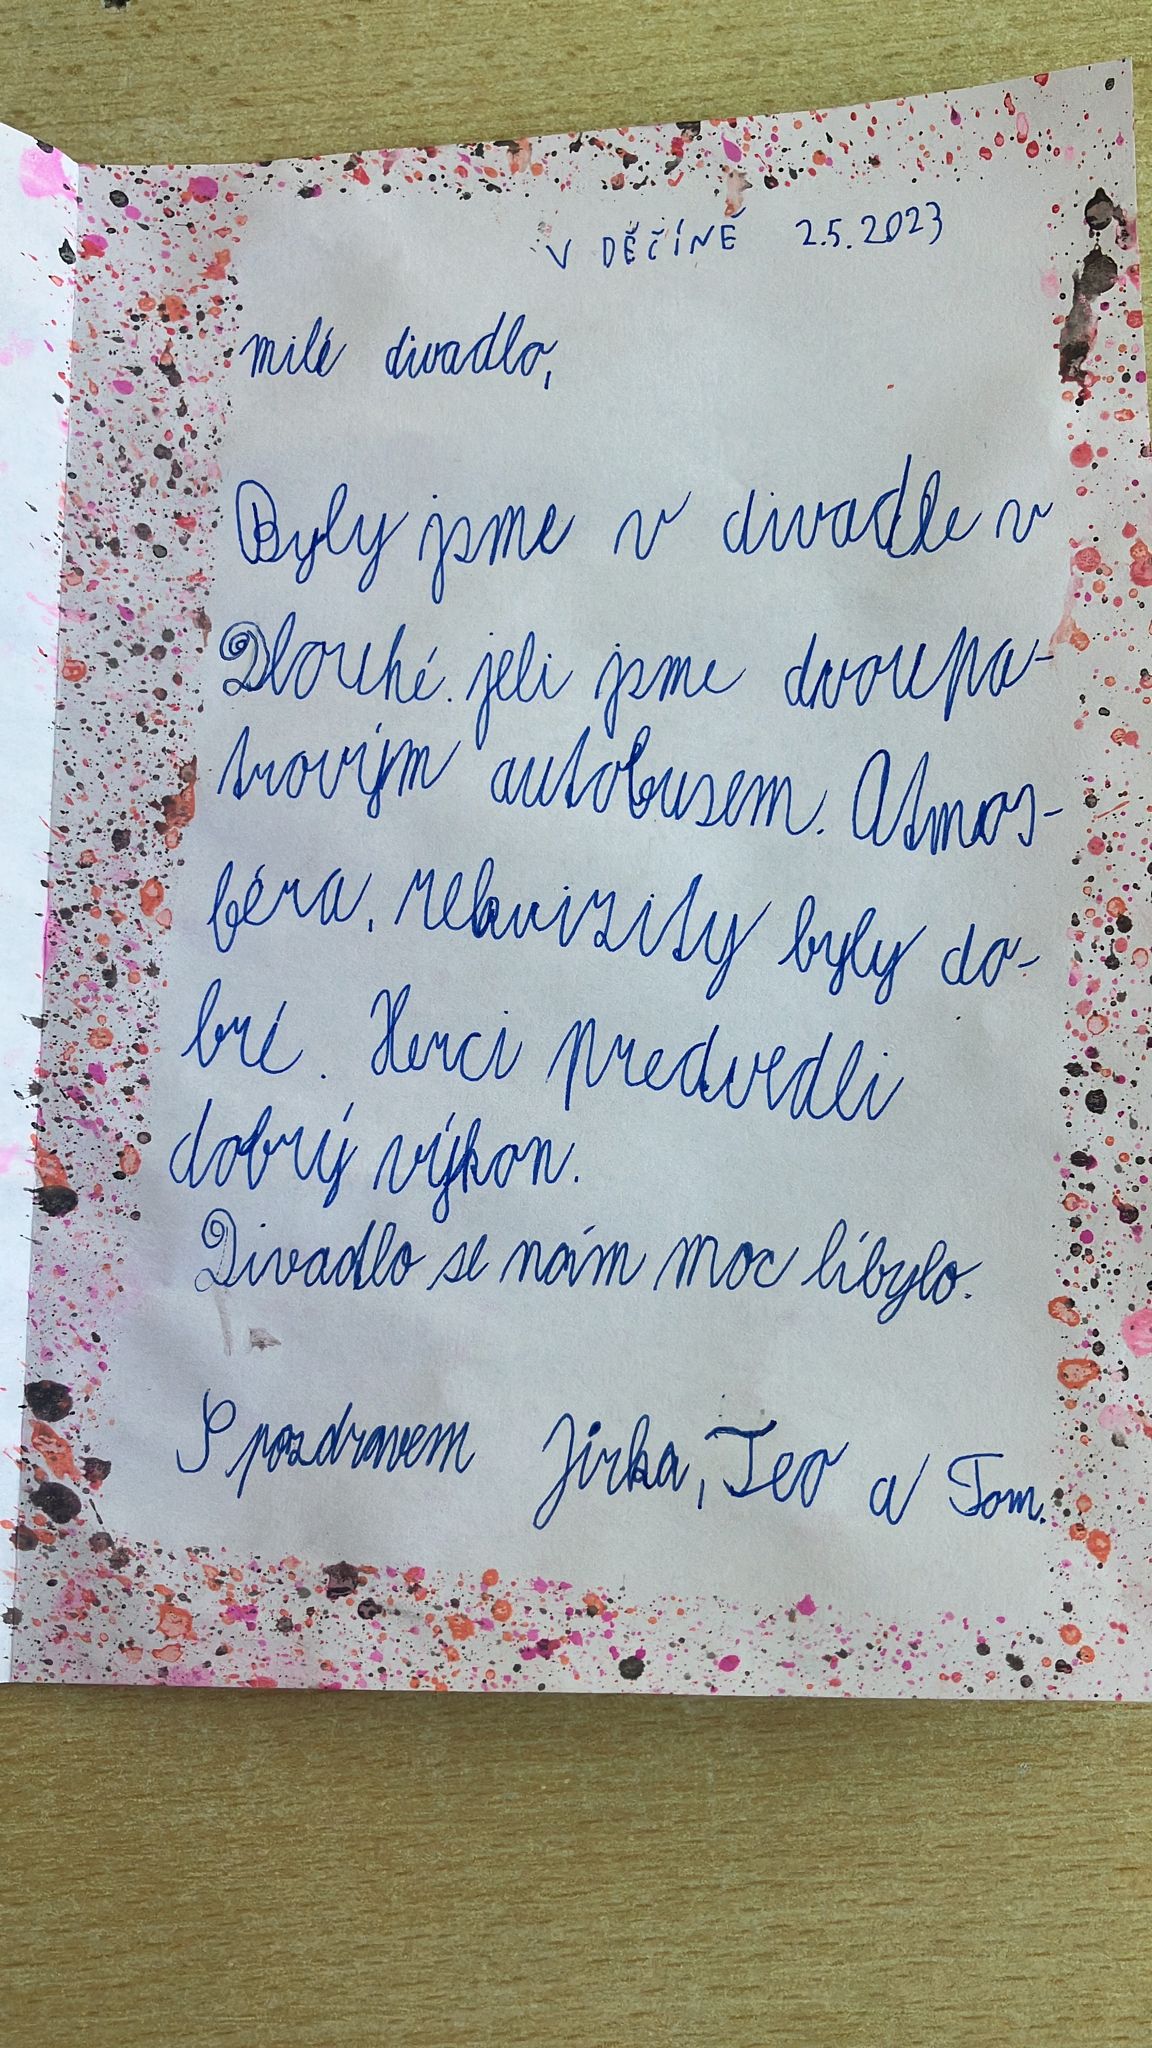 V DĚČÍNĚ 2.5.2023
milé divadlo,
Byly jsme v divadle v
Dlouhé. jeli jsme dvoupa-
trovým autobusem. Atmos-
féra, rekvizity byly do-
bré. Herci předvedli
dobrý výkon.
Divadlo se nám moc líbylo.
S pozdravem Jirka, Teo a Tom.